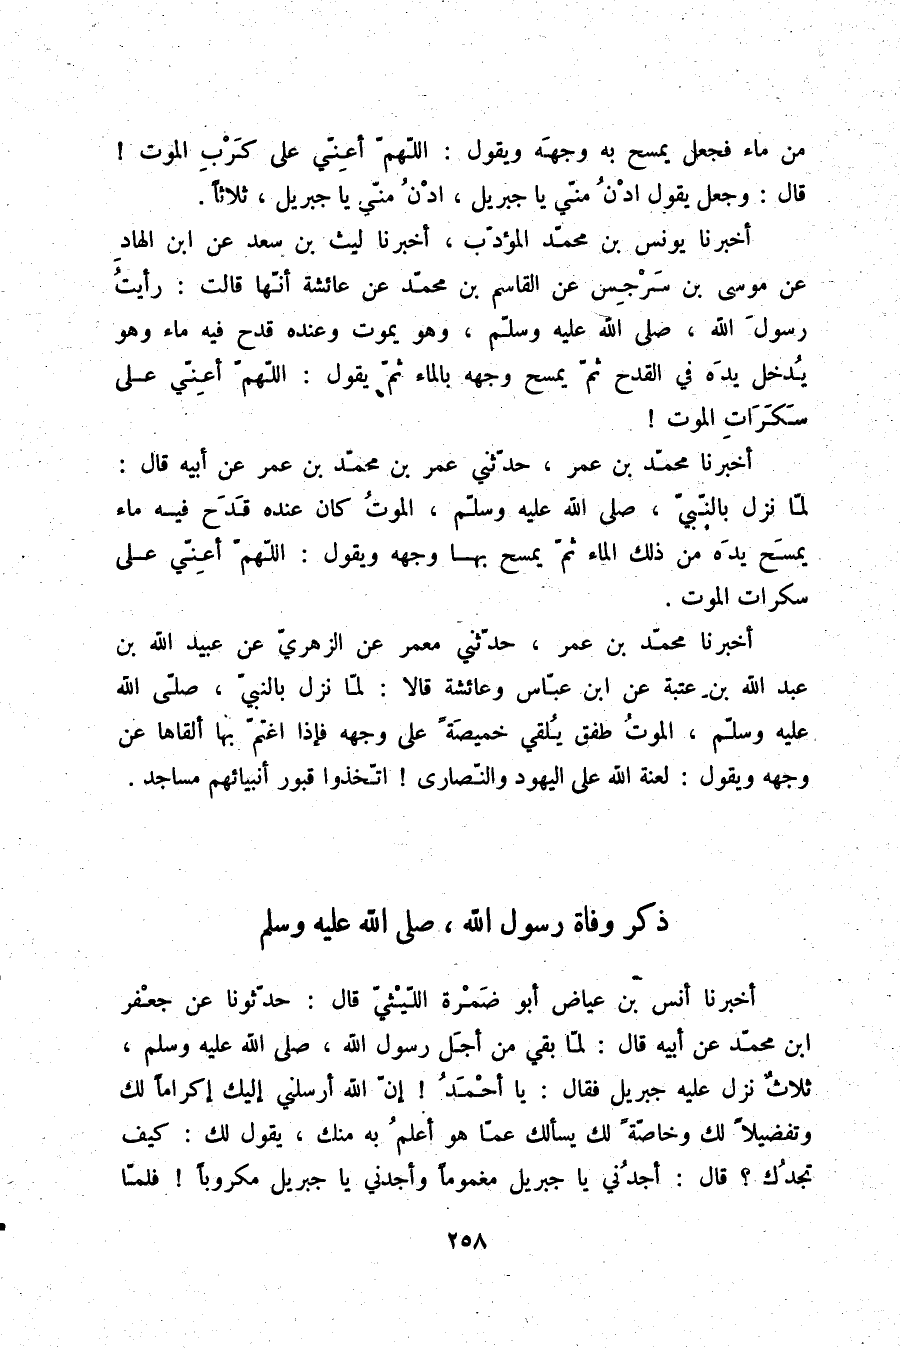 من ماء فجعل يمسح به وجهَه ويقول : اللّهمّ أعِنّي على كَرْبِ الموت !
قال : وجعل يقول ادْنُ منّي يا جبريل ، ادْنُ منّي يا جبريل ، ثلاثاً .
أخبرنا يونس بن محمّد المؤدّب ، أخبرنا ليث بن سعد عن ابن الهادِ
عن موسى بن سَرْجِس عن القاسم بن محمّد عن عائشة أنّها قالت : رأيتُ
رسولَ الله ، صلى الله عليه وسلّم ، وهو يموت وعنده قدح فيه ماء وهو
يُدخل يدَه في القدح ثمّ يمسح وجهه بالماء ثمّ يقول : اللّهمّ أعِنّي عـلى
سَكَرَاتِ الموت !
أخبرنا محمّد بن عمر ، حدّثني عمر بن محمّد بن عمر عن أبيه قال :
لمّا نزل بالنّبيّ ، صلى الله عليه وسلّم ، الموتُ كان عنده قَدَح فيـه ماء
يمسَح يدَه من ذلك الماء ثمّ يمسح بهـا وجهه ويقول : اللّهمّ أعِنّي عـلى
سكرات الموت .
أخبرنا محمّد بن عمر ، حدّثني معمر عن الزهريّ عن عبيد الله بن
عبد الله بن عتبة عن ابن عبّاس وعائشة قالا : لمّا نزل بالنبيّ ، صلّى الله
عليه وسلّم ، الموتُ طفق يُلقي خميصَةً على وجهه فإذا اغتمّ بها ألقاها عن
وجهه ويقول : لعنة الله على اليهود والنّصارى ! اتّخذوا قبور أنبيائهم مساجد .
ذكر وفاة رسول الله ، صلى الله عليه وسلم
أخبرنا أنس بن عياض أبو ضَمْرة اللّيْثيّ قال : حدّثونا عن جعْفر
ابن محمّد عن أبيه قال : لمّا بقي من أجَل رسول الله ، صلى الله عليه وسلم ،
ثلاثٌ نزل عليه جبريل فقال : يا أحْمَدُ ! إنّ الله أرسلني إليك إكراماً لك
وتفضيلاً لك وخاصّةً لك يسألك عمّا هو أعلمُ به منك ، يقول لك : كيف
تجدُك ؟ قال : أجدُني يا جبريل مغموماً وأجدني يا جبريل مكروباً ! فلمّا
٢٥٨